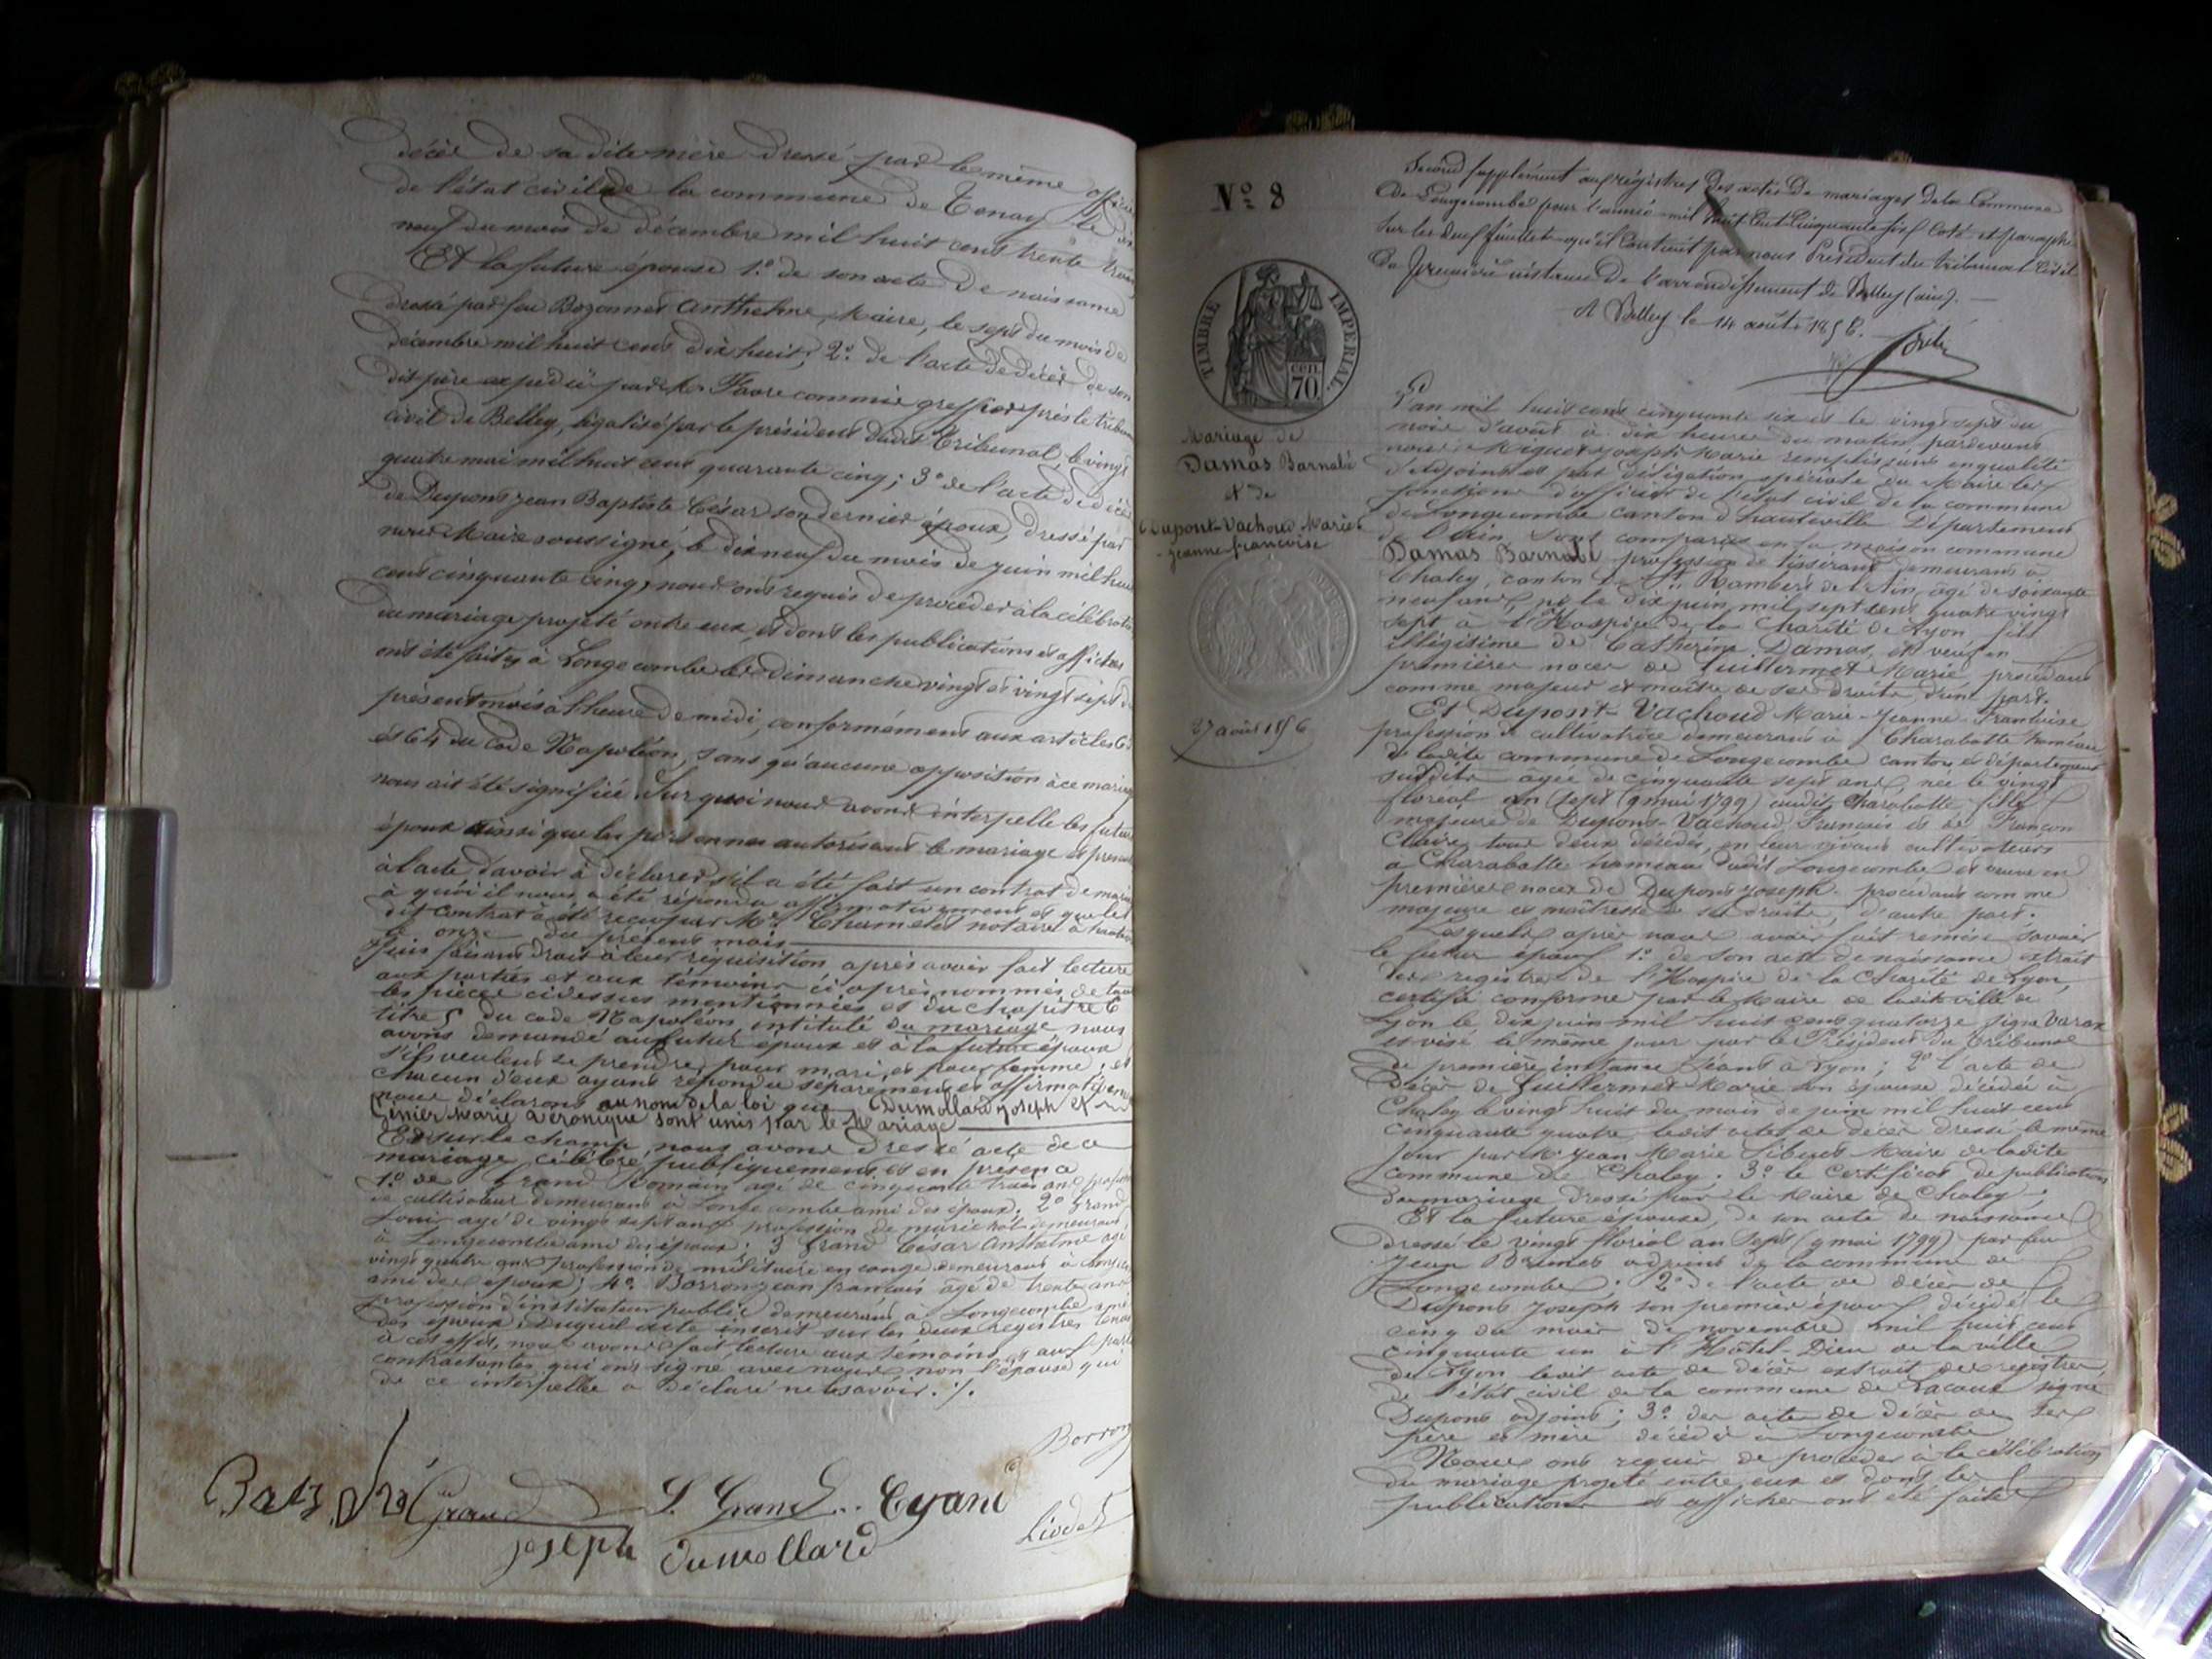 décès de sa dite mère dressé par le même officier
de l'état civil de la commune de Tenay le dix
neuf du mois de décembre mil huit cent trente trois
Et la future épouse 1.º de son acte de naissance
dressé par feu Bozonnet Anthelme, Maire, le sept du mois de
décembre mil huit cent dix huit; 2.º de l'acte de décès de son
dit père expédié par Favre commis greffier près le tribunal
civil de Belley, légalisé par le président dudit Tribunal, le vingt
quatre mai mil huit cent quarante cinq; 3º de l'acte de décès
de Dupont Jean Baptiste César son dernier époux, dressé par
nous Maire soussigné, le dix neuf du mois de juin mil huit
cent cinquante cinq, nous ont requis de procéder à la célébration
du mariage projeté entre eux et dont les publications et affiches
ont été faites à Longecombe les dimanche vingt et vingt sept du
présent mois à l'heure de midi, conformément aux articles 63
et 64 du Code Napoléon, sans qu'aucune opposition à ce mariage
nous ait été signifiée. Sur quoi nous avons interpellé les futurs
époux ainsi que les personnes autorisant le mariage et présentes
à l'acte d'avoir à déclarer s'il a été fait un contrat de mariage
à quoi il nous a été répondu affirmativement et que le
dit contrat a été reçu par Me. Chamelet notaire à
le onze du présent mois
Puis faisant droit à leur réquisition après avoir fait lecture
aux parties et aux témoins ci après nommés de toutes
les pièces ci dessus mentionnées et du chapitre 6
titre 5 du code Napoléon intitulé du mariage nous
avons demandé au futur époux et à la future épouse
s'ils veulent se prendre pour mari et pour femme; et
chacun d'eux ayant répondu séparément et affirmativement
nous déclarons au nom de la loi que Dumollard Joseph et
Marie Véronique sont unis par le Mariage
Et sur le champ, nous avons dressé acte de ce
mariage célébré publiquement et en présence
1.º de Grand Romain agé de cinquante trois ans profession
de cultivateur demeurant à Longecombe ami des époux. 2º Grand
Louis agé de vingt sept ans profession de maréchal demeurant
à Longecombe ami des époux; 3 Grand César Anthelme agé
vingt quatre ans profession de militaire en congé demeurant à Longecombe
ami des époux; 4º. Borron Jean François agé de trente ans
profession d'instituteur public demeurant à Longecombe ami
des époux. Duquel acte inscrit sur les deux registres tenus
à cet effet, nous avons fait lecture aux témoins et aux parties
contractantes qui ont signé avec nous non l'épouse qui
de ce interpellée a déclaré ne le savoir. /.
Borron
Grand L. Grand Tyand
Joseph Dumollard Liodet
Nº 8
Second supplément aux régistres des actes de mariages de la Commune
de Longecombe pour l'année mil huit cent cinquante six Coté et paraphé
sur les deux feuillets qu'il contient par nous Président du tribunal civil
de première instance de l'arrondissement de Belley (ain).
A Belley le 14 août 1856.
TIMBRE IMPERIAL.
cen.
70.
Mariage de
Damas Barnabé
et de
Dupont-Vachoud Marie
Jeanne françoise
27 août 1856
L'an mil huit cent cinquante six et le vingt sept du
mois d'août à dix heures du matin pardevant
nous Miguet Joseph Marie remplissant en qualité
d'Adjoint et par délégation spéciale du Maire les
fonctions d'officier de l'état civil de la commune
de Longecombe canton d'hauteville Département
de l'Ain, sont comparus en la maison commune
Damas Barnabé, profession de tisserand demeurant à
Chaley, canton de St. Rambert de l'Ain, agé de soixante
neuf ans, né le dix juin mil sept cent quatre vingt
sept à l'Hospice de la Charité de Lyon fils
illégitime de Catherine Damas, et veuf en
premières noces de Guillermet Marie, procédant
comme majeur et maître de ses droits, d'une part.
Et Dupont-Vachoud Marie-Jeanne-Françoise
profession de cultivatrice demeurant à Charabotte hameau
de ladite commune de Longecombe canton et département
susdits agée de cinquante sept ans, née le vingt
floréal an sept (9 mai 1799) audit Charabotte fille
majeure de Dupont-Vachoud François et de Françon
Claire, tous deux décédés, en leur vivant cultivateurs
à Charabotte hameau dudit Longecombe et veuve en
premières noces de Dupont Joseph. procédant comme
majeure et maîtresse de ses droits, d'autre part.
Lesquels après nous avoir fait remise savoir
le futur époux 1.º de son acte de naissance extrait
des registres de l'Hospice de la Charité de Lyon,
certifié conforme par le Maire de ladite ville de
Lyon le dix juin mil huit cent quatorze signé Varax
et visé le même jour par le Président du Tribunal
de première instance séant à Lyon; 2º l'acte de
décès de Guillermet Marie son épouse décédée à
Chaley le vingt huit du mois de juin mil huit cent
cinquante quatre, ledit acte de décès dressé le même
jour par Mr Jean Marie Maire de ladite
commune de Chaley. 3.º le certificat de publication
du mariage dressé par le Maire de Chaley.
Et la future épouse, de son acte de naissance
dressé le vingt floréal an sept (9 mai 1799) par feu
Jean adjoint de la commune de
Longecombe. 2º de l'acte de décès de
Dupont Joseph son premier époux décédé le
cinq du mois de novembre mil huit cent
cinquante un à l'Hôtel-Dieu de la ville
de Lyon ledit acte de décès extrait des registres
de l'état civil de la commune de Lacoux signé
Dupont adjoint; 3.º des actes de décès de ses
père et mère décédés à Longecombe
Nous ont requis de procéder à la célébration
du mariage projeté entre eux et dont les
publications et affiches ont été faites